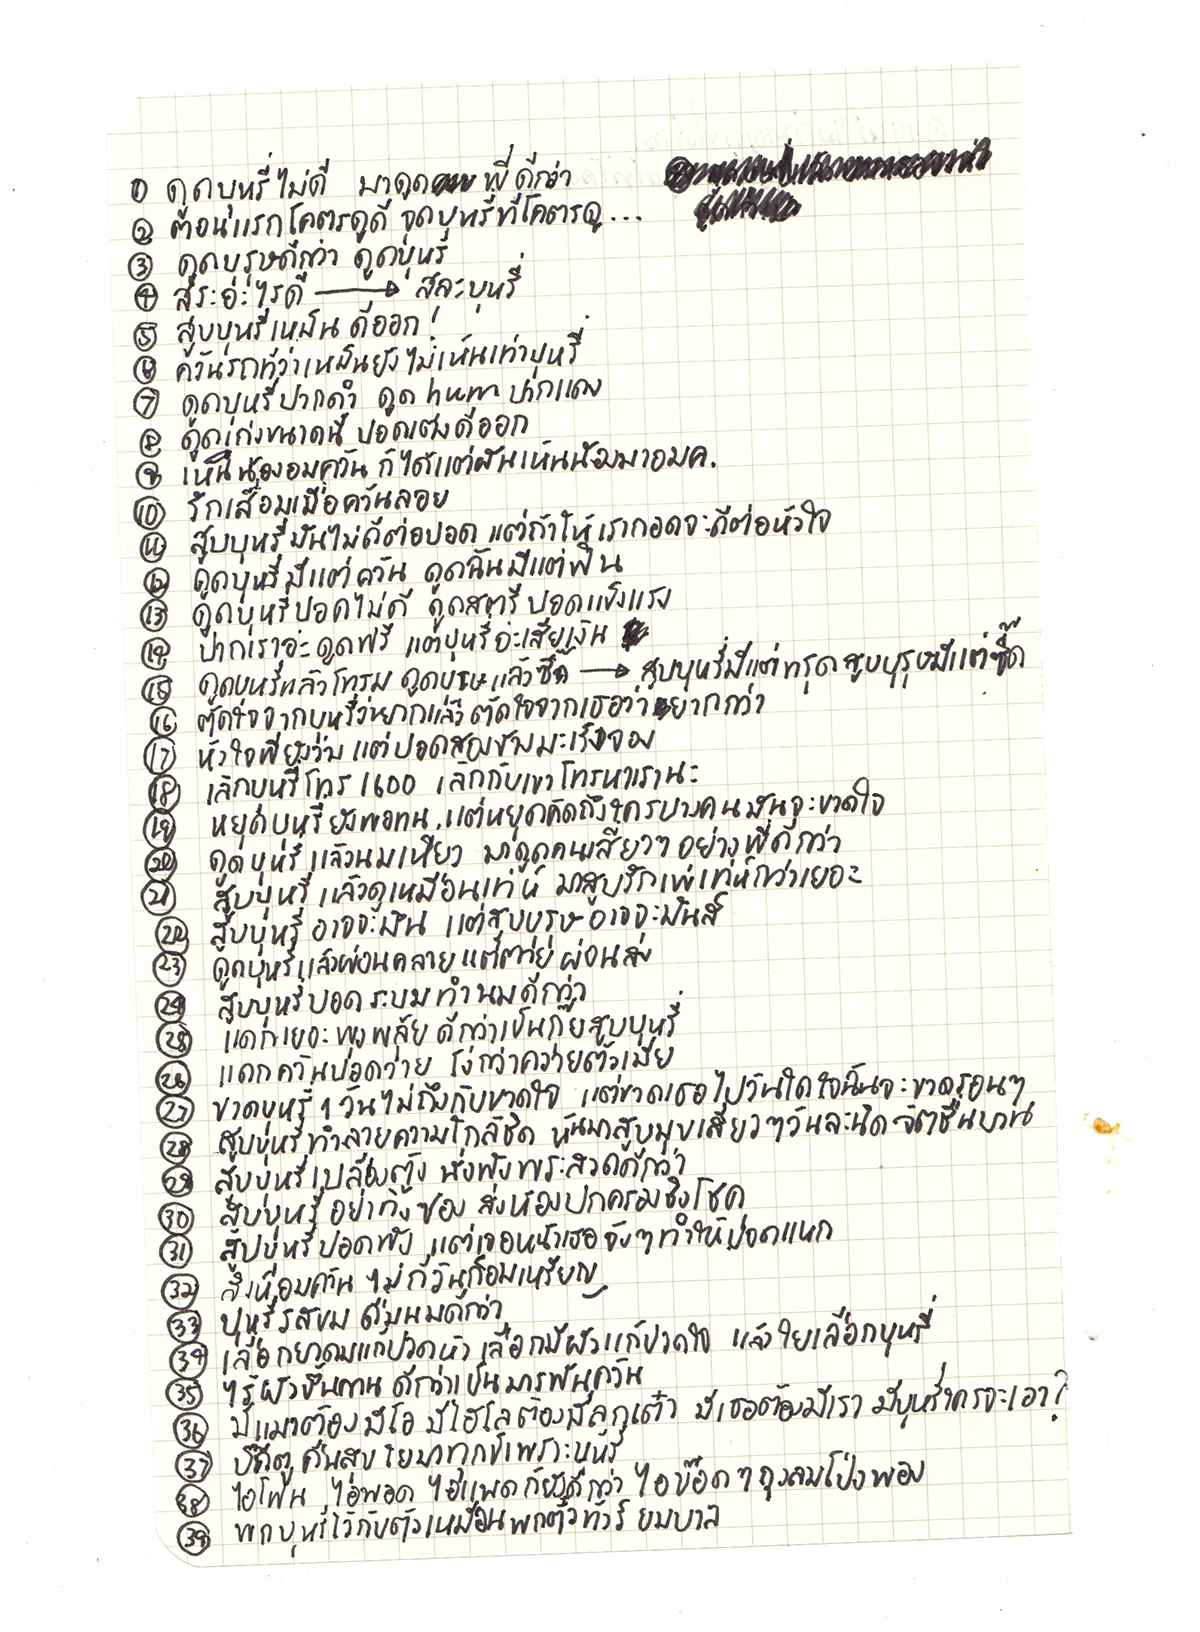 ① ดูดบุหรี่ไม่ดี มาดูด พี่ดีกว่า
② ตอนแรกโคตรดูดี จุดบุหรี่ทีโคตรดู...
③ ดูดบุรุษดีกว่า ดูดบุหรี่
④ สระอะไรดี → สละบุหรี่
⑤ สูบบุหรี่เหม็น ตีออก
⑥ ควันรถที่ว่าเหม็นยังไม่เห็นเท่าบุหรี่
⑦ ดูดบุหรี่ปากดำ ดูด hum ปากแดง
⑧ ดูดเก่งขนาดนี้ ปอดแต่งดีออก
⑨ เห็นน้องอมควัน ก็ได้แต่ฝันเห็นน้องมาอมค.
⑩ รักเสื่อมเมื่อควันลอย
⑪ สูบบุหรี่มันไม่ดีต่อปอด แต่ถ้าให้เรากอดจะดีต่อหัวใจ
⑫ ดูดบุหรี่มีแต่ควัน ดูดฉันมีแต่ฟิน
⑬ ดูดบุหรี่ปอดไม่ดี ดูดสตรีปอดแข็งแรง
⑭ ปากเราอ่ะดูดฟรี แต่บุหรี่อ่ะเสียเงิน
⑮ ดูดบุหรี่แล้วโทรม ดูดบุรุษแล้วซี๊ด → สูบบุหรี่มีแต่ทรุด สูบบุรุษมีแต่ซี๊ด
⑯ ตัดใจจากบุหรี่ว่ายากแล้ว ตัดใจจากเธอว่ายากกว่า
⑰ หัวใจพี่ยังว่าง แต่ปอดสองข้างมะเร็งจอง
⑱ เลิกบุหรี่โทร 1600 เลิกกับเขาโทรหาเรานะ
⑲ หยุดบุหรี่ยังพอทน แต่หยุดคิดถึงใครบางคนมันจะขาดใจ
⑳ ดูดบุหรี่แล้วนมเหี่ยว มาดูดคนเสียวๆ อย่างพี่ดีกว่า
㉑ สูบบุหรี่แล้วดูเหมือนเท่ห์ มาสูบรักเพ่เท่ห์กว่าเยอะ
㉒ สูบบุหรี่อาจจะมัน แต่สูบบุรุษอาจจะมันส์
㉓ ดูดบุหรี่แล้วผ่อนคลาย แต่ตายผ่อนส่ง
㉔ สูบบุหรี่ปอดระบม ทำนมดีกว่า
㉕ แดกเยอะพุงพลุ้ย ดีกว่าเป็นกุ๊ยสูบบุหรี่
㉖ แดกควันปอดวาย โง่กว่าควายตัวเมีย
㉗ ขาดบุหรี่ 1 วันไม่ถึงกับขาดใจ แต่ขาดเธอไปวันใดใจฉันจะขาดรอนๆ
㉘ สูบบุหรี่ทำลายความใกล้ชิด หันมาสูบมุขเสี่ยวๆวันละนิดจิตชื่นบาน
㉙ สูบบุหรี่เปลืองตัง นั่งฟังพระสวดดีกว่า
㉚ สูบบุหรี่อย่าทิ้งซอง ส่งห้องปกครองชิงโชค
㉛ สูบบุหรี่ปอดพัง แต่เจอหน้าเธอจังๆทำให้ปอดแหก
㉜ สิงห์อมควัน ไม่กี่วันก็อมเหรียญ
㉝ บุหรี่รสขม ดื่มนมดีกว่า
㉞ เลือกยาดมแก้ปวดหัว เลือกมีผัวแก้ปวดใจ แล้วใยเลือกบุหรี่
㉟ ไร้ผัวขึ้นคาน ดีกว่าเป็นมารพ่นควัน
㊱ มีแมาต้องมีโอ มีไฮโลต้องมีลูกเต๋า มีเธอต้องมีเรา มีบุหรี่ใครจะเอา?
㊲ ศัตรู คนสุข ใยมาทุกข์เพราะบุหรี่
㊳ ไอโฟน ไอพอด ไอแพดก็ยังดีกว่า ไอบ๊อดๆถุงลมโป่งพอง
㊴ พกบุหรี่ไว้กับตัวเหมือนพกตั๋วทัวร์ยมบาล